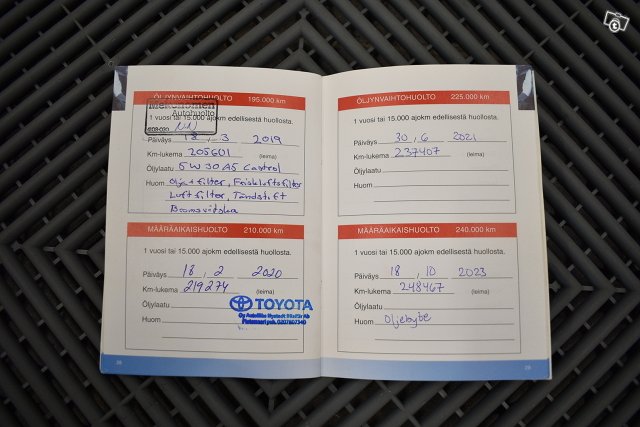 ÖLJYNVAIHTOHUOLTO 195.000 km
Autohuolto
1 vuosi tai 15.000 ajokm edellisestä huollosta.
Päiväys 18 . 3 2019
Km-lukema 205601 (leima)
Öljylaatu 5W30 A5 Castrol
Huom Olja + filter, Friskluftsfilter
Luftfilter, Tändstift
Bromsvätska
MÄÄRÄAIKAISHUOLTO 210.000 km
1 vuosi tai 15.000 ajokm edellisestä huollosta.
Päiväys 18 , 2 2020
Km-lukema 219274 (leima)
Öljylaatu
TOYOTA
Huom
28
ÖLJYNVAIHTOHUOLTO 225.000 km
1 vuosi tai 15.000 ajokm edellisestä huollosta.
Päiväys 30 . 6 2021
Km-lukema 237407 (leima)
Öljylaatu
Huom
MÄÄRÄAIKAISHUOLTO 240.000 km
1 vuosi tai 15.000 ajokm edellisestä huollosta.
Päiväys 18 , 10 2023
Km-lukema 248467 (leima)
Öljylaatu
Huom Oljebyte
29